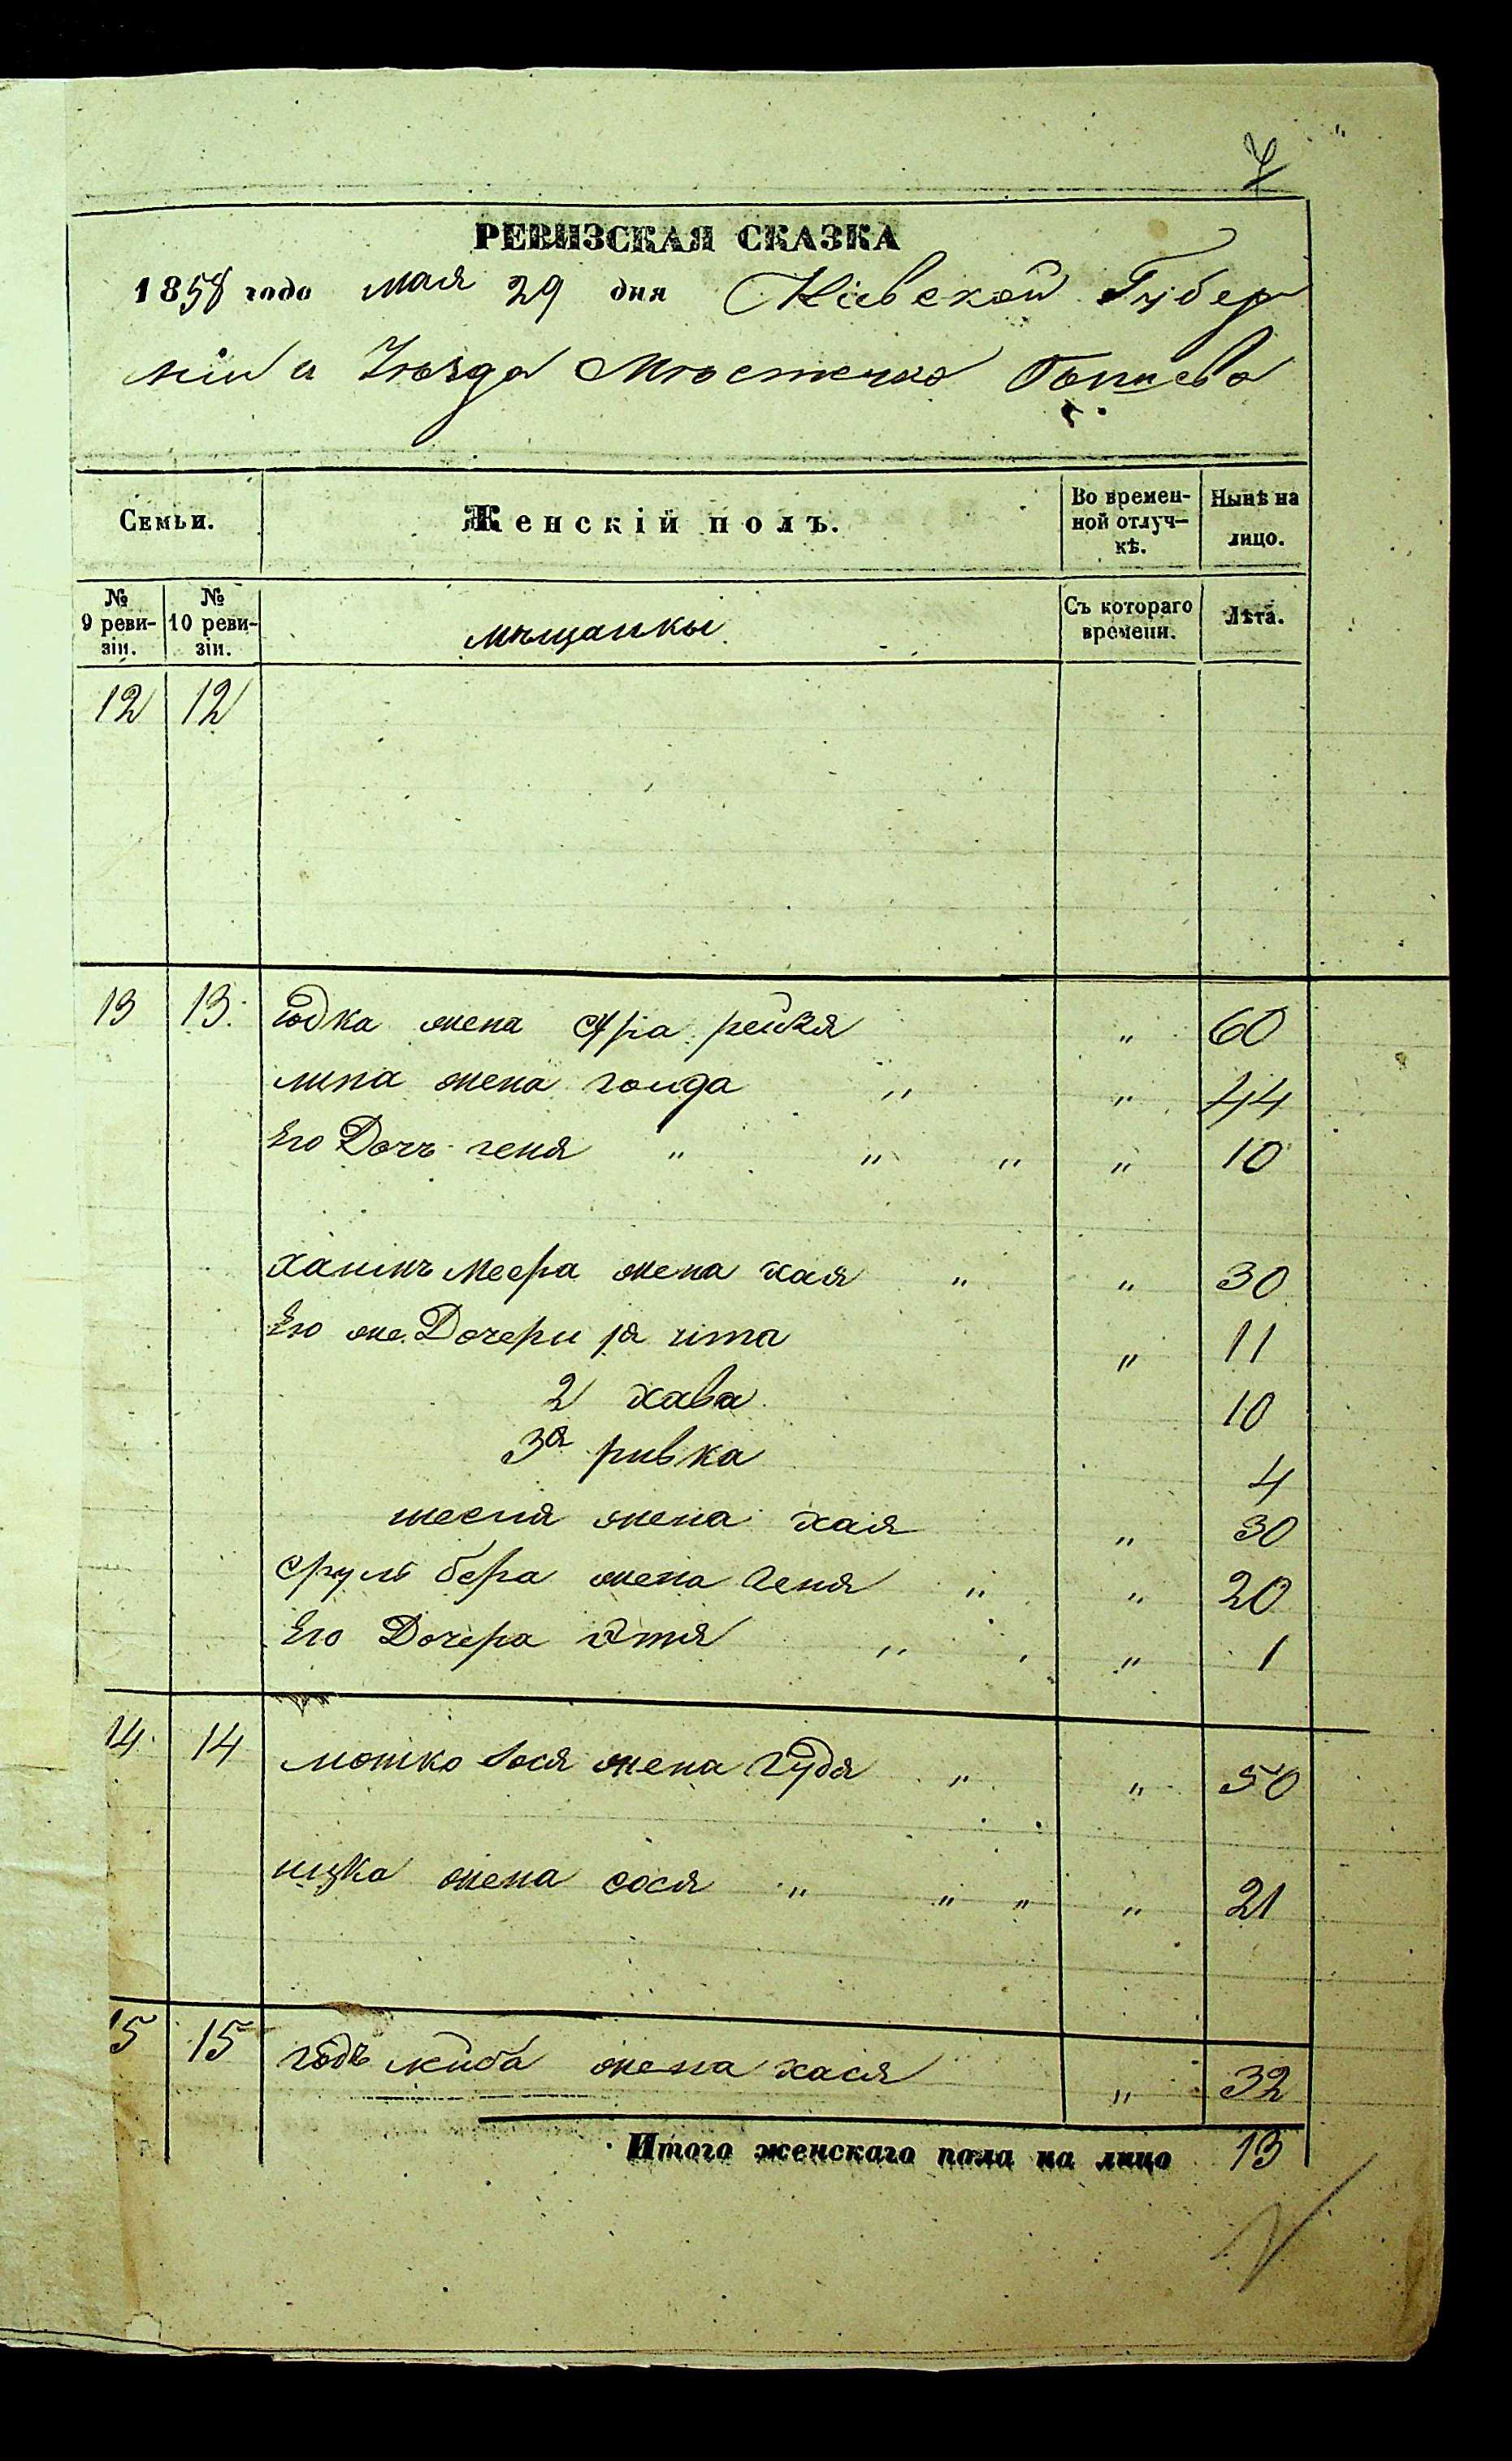 РЕВИЗСКАЯ СКАЗКА
1858 года мая 29 дня Кіевской Губер
ніи и Уѣзда Мѣстечко
Семьи. Женскій полъ. Во времен- Нынѣ на
ной отлуч- лицо.
кѣ.
№ № Съ котораго Лѣта.
9 реви- 10 реви- мѣщанки времени.
зіи. зіи.
12 12
13 13. Юдка жена сура рейзя " 60
липа жена голда " " 44
Его Дочь геня " " " " 10
хаимъ Меера жена хая " " 30
Его же Дочери 1я 11
2 хава 10
3я ривка 4
жена хая " 30
сруль бера жена геня " " 20
Его Дочера " " 1
14 14 мошко жена " " 50
ицко жена сося " " " " 21
15 15 жена хася " 32
Итого женскаго пола на лицо 13